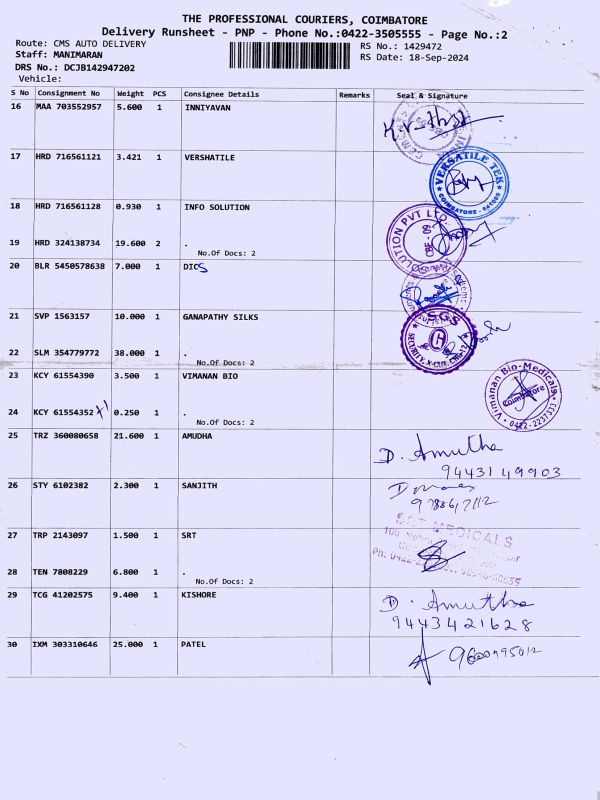 THE PROFESSIONAL COURIERS, COIMBATORE
Delivery Runsheet - PNP - Phone No.:0422-3505555 - Page No.:2
Route: CMS AUTO DELIVERY RS No.: 1429472
Staff: MANIMARAN RS Date: 18-Sep-2024
DRS No.: DCJB142947202
Vehicle:
S No Consignment No Weight PCS Consignee Details Remarks Seal & Signature
16 MAA 703552957 5.600 1 INNIYAVAN
17 HRD 716561121 3.421 1 VERSHATILE
VERSATILE TEK
COIMBATORE
18 HRD 716561128 0.930 1 INFO SOLUTION
SOLUTION PVT LTD.
CBE-09
19 HRD 324138734 19.600 2 .
No.Of Docs: 2
20 BLR 5450578638 7.000 1 DICS
21 SVP 1563157 10.000 1 GANAPATHY SILKS
SGS
SECURITY
22 SLM 354779772 38.000 1 .
No.Of Docs: 2
23 KCY 61554390 3.500 1 VIMANAN BIO
Vimanan Bio-Medicals
Coimbatore
0422-2237333
24 KCY 61554352 +1 0.250 1 .
No.Of Docs: 2
25 TRZ 360080658 21.600 1 AMUDHA
D. Amutha
9443149903
26 STY 6102382 2.300 1 SANJITH
27 TRP 2143097 1.500 1 SRT
SRT MEDICALS
28 TEN 7808229 6.800 1 .
No.Of Docs: 2
29 TCG 41202575 9.400 1 KISHORE
D. Amutha
9443421628
30 IXM 303310646 25.000 1 PATEL